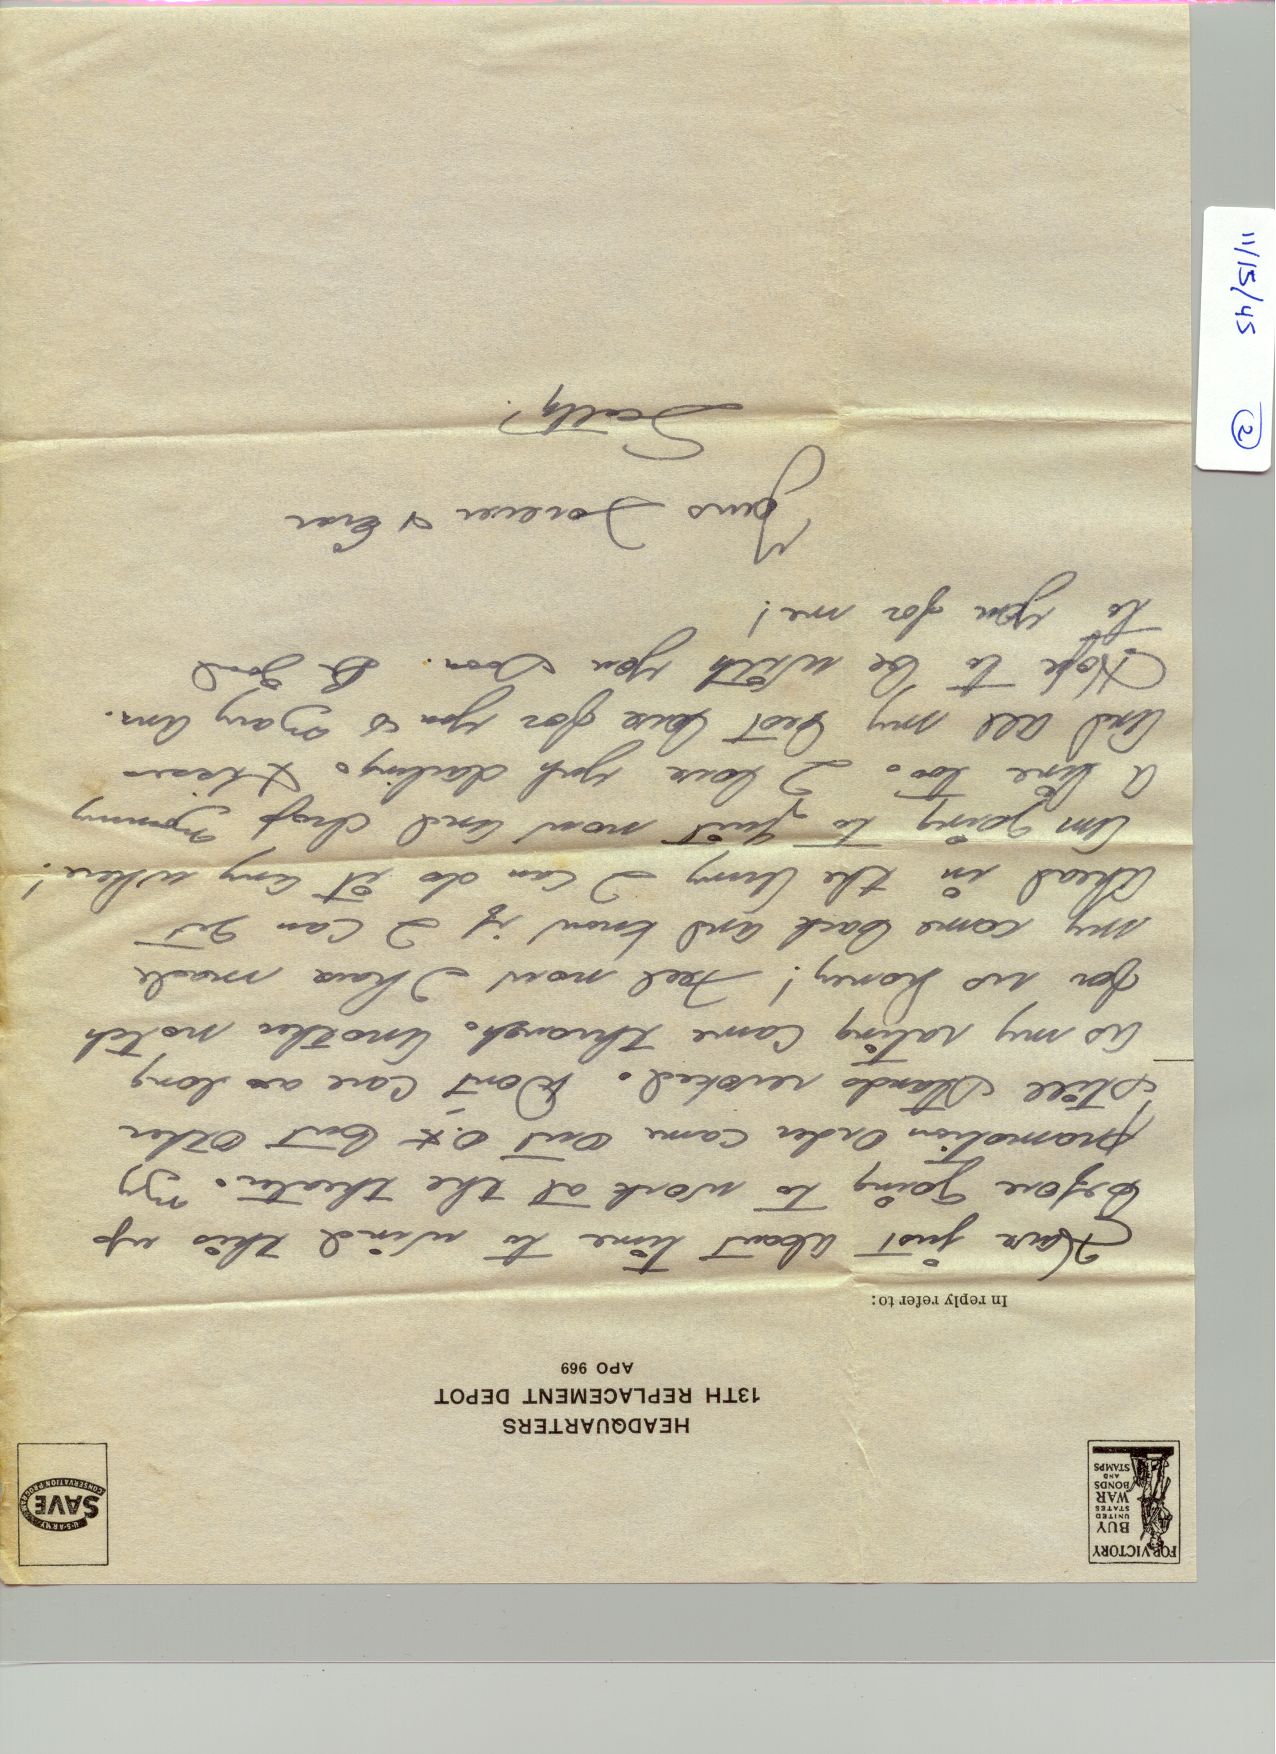 FOR VICTORY
BUY
UNITED
STATES
WAR
BONDS
AND
STAMPS
U·S·ARMY
SAVE
CONSERVATION PROGRAM
HEADQUARTERS
13TH REPLACEMENT DEPOT
APO 969
In reply refer to:
Have just about time to wind this up
before going to work at the theater. My
promotion order came out O.K but other
still stands revoked. Don't care as long
as my rating came through. Another notch
for us honey! Feel now I have made
my come back and know if I can get
ahead in the Army I can do it any where!
Am going to quit now and drop Mommy
a line too. I love you darling.
And all my best love for you is Mary Ann.
Hope to be with you soon. Be good
to you for me!
Yours Forever & Ever
Scotty!
11/15/45
2